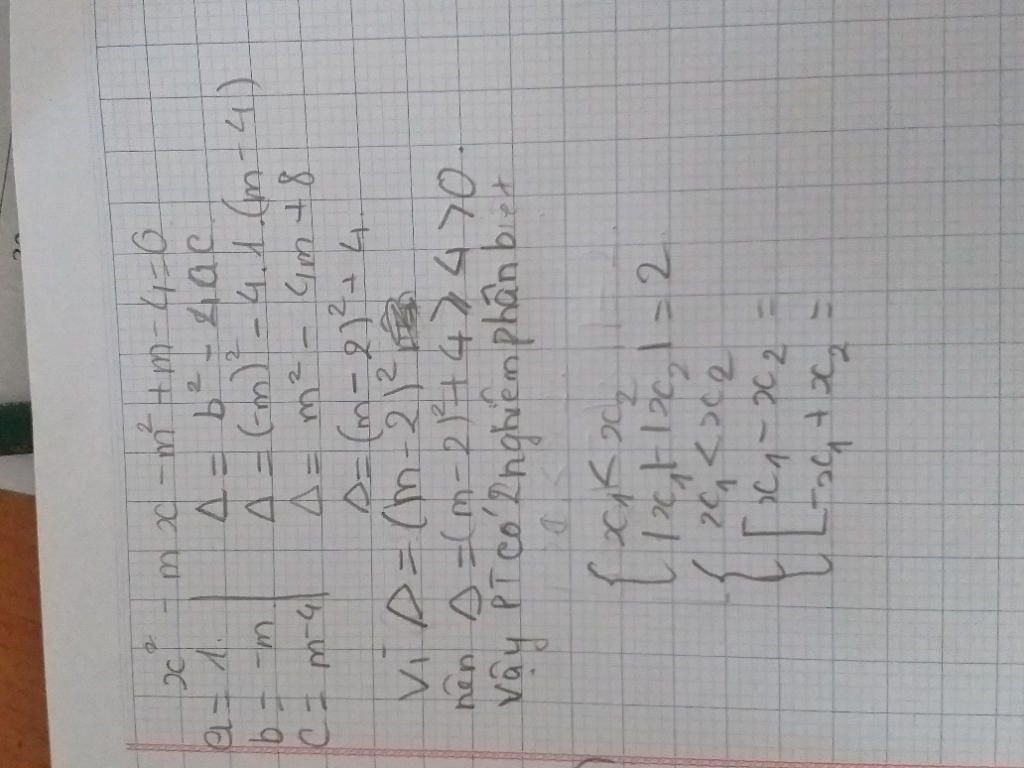 x² - mx - m² + m - 4 = 0
a = 1 | Δ = b² - 4ac
b = -m | Δ = (-m)² - 4.1.(m - 4)
c = m-4 | Δ = m² - 4m + 8
Δ = (m - 2)² + 4
Vì Δ = (m - 2)²
nên Δ = (m - 2)² + 4 ⩾ 4 > 0.
Vậy PT có 2 nghiệm phân biệt
{ x₁ < x₂
|x₁| + |x₂| = 2
{ x₁ < x₂
[ x₁ - x₂ =
-x₁ + x₂ =